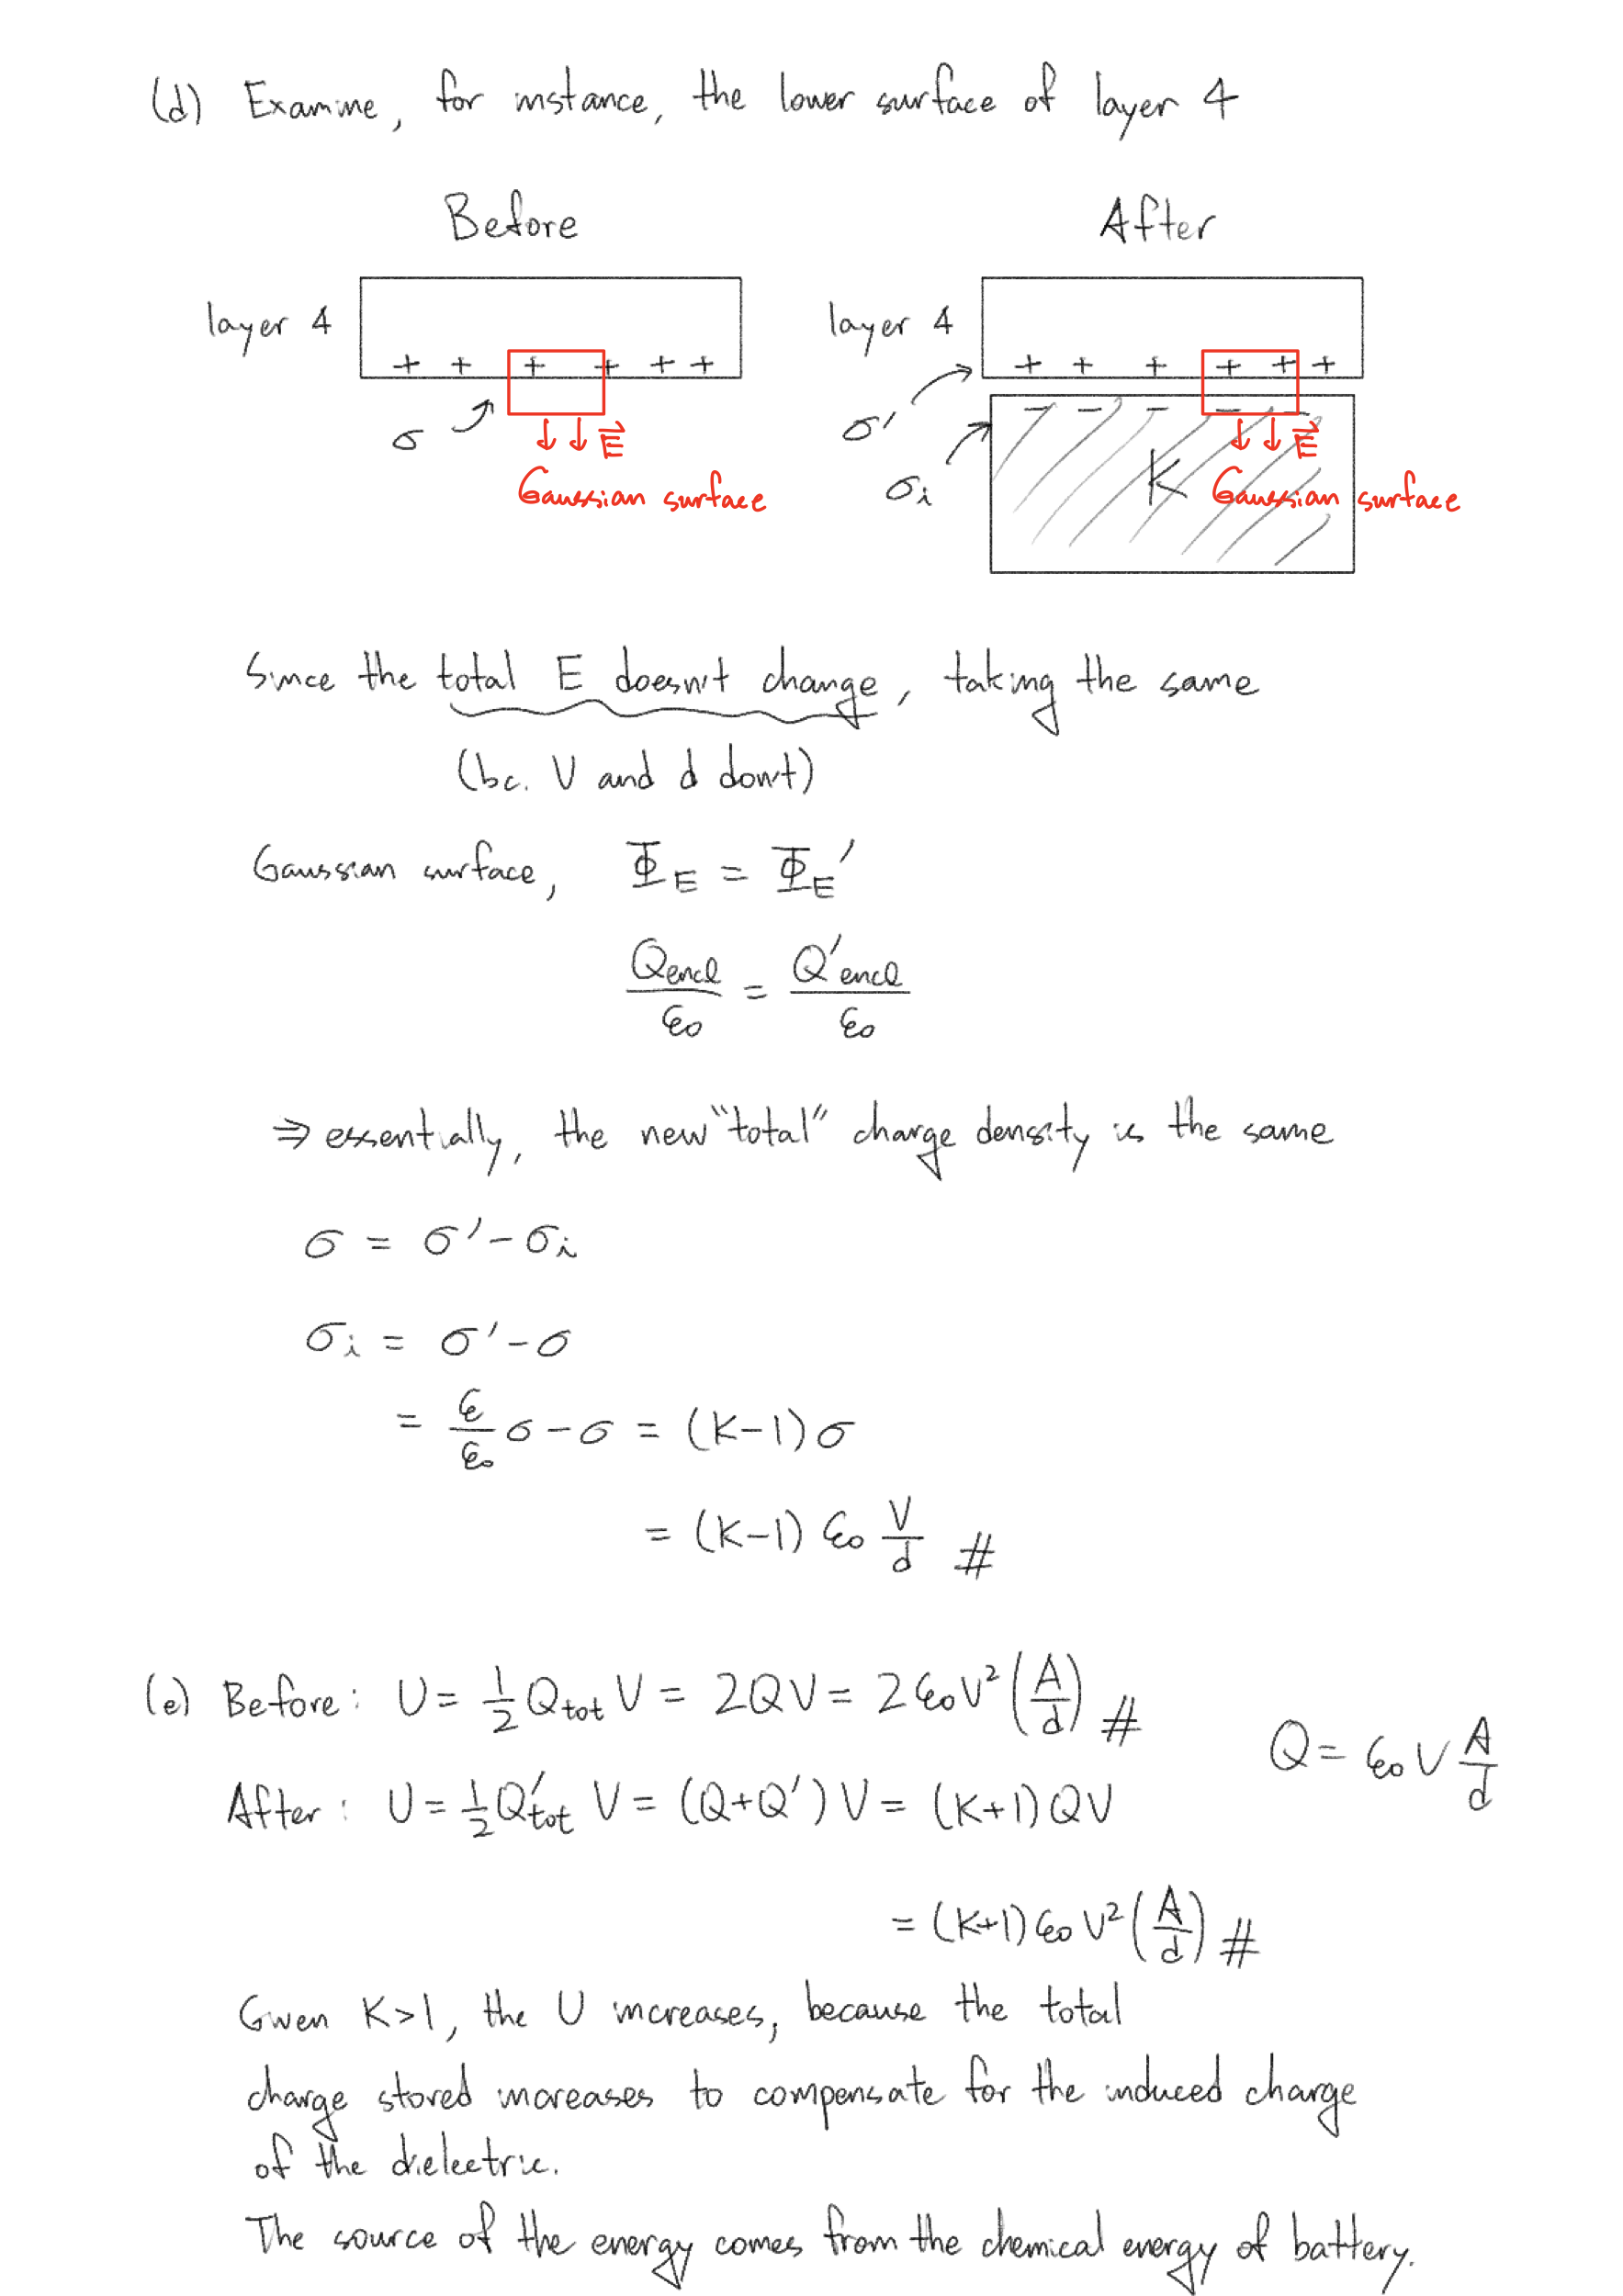 (d) Examine, for instance, the lower surface of layer 4
Before
After
layer 4
+ + + + + +
σ
E⃗
Gaussian surface
layer 4
+ + + + + +
σ'
− − − − −
σi
K
E⃗
Gaussian surface
Since the total E doesn't change, taking the same
(bc. V and d don't)
Gaussian surface, Φ_E = Φ_E'
Qencl/ε₀ = Q'encl/ε₀
⇒ essentially, the new "total" charge density is the same
σ = σ' − σi
σi = σ' − σ
= ε/ε₀ σ − σ = (K−1)σ
= (K−1) ε₀ V/d #
(e) Before: U = 1/2 Qtot V = 2QV = 2ε₀V² (A/d) #
Q = ε₀ V A/d
After: U = 1/2 Q'tot V = (Q+Q') V = (K+1) QV
= (K+1) ε₀ V² (A/d) #
Given K>1, the U increases, because the total
charge stored increases to compensate for the induced charge
of the dielectric.
The source of the energy comes from the chemical energy of battery.